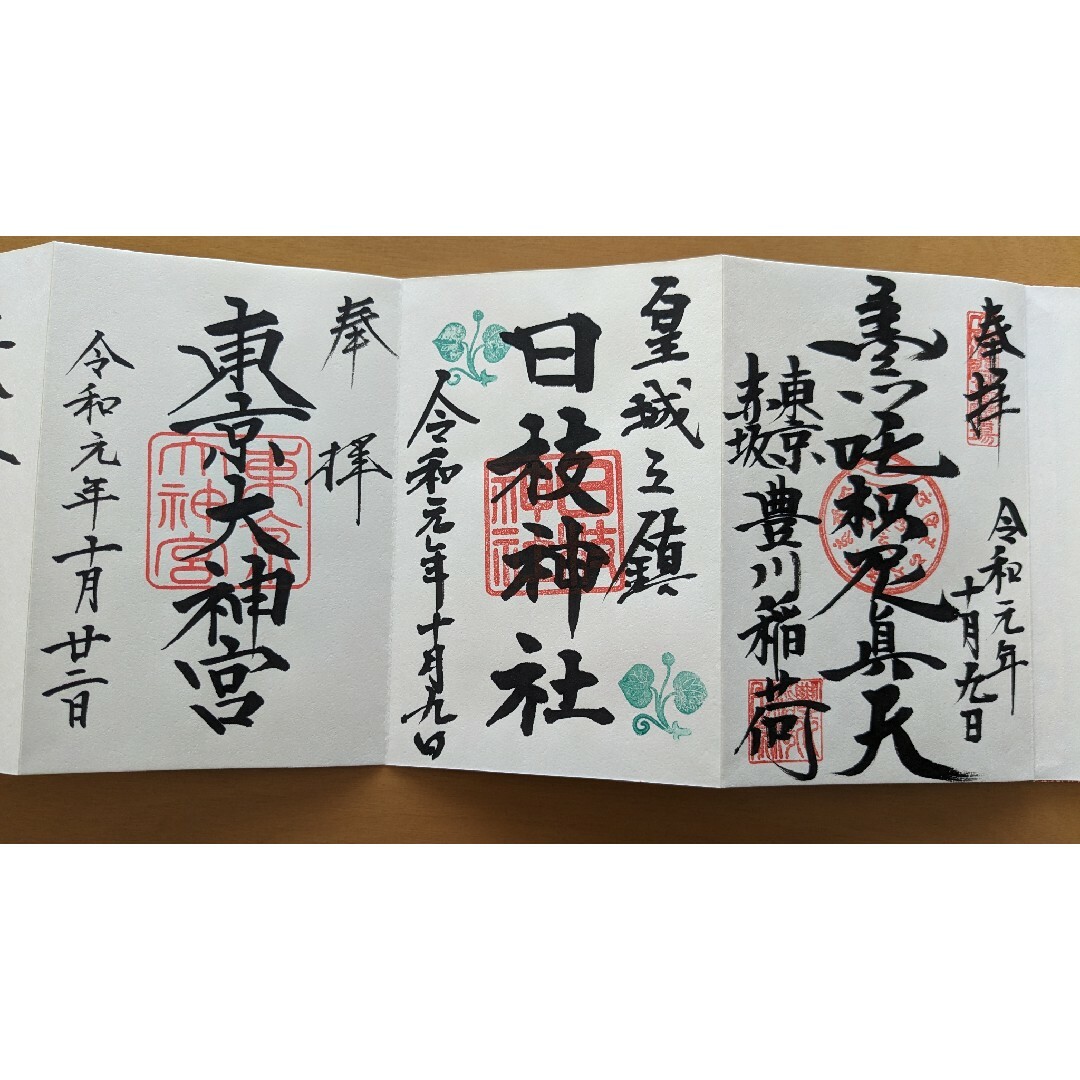 奉拝
令和元年
十月九日
荼吒枳尼眞天
東京
赤坂
豊川稲荷
皇城之鎮
日枝神社
日枝
神社
令和元年十月九日
奉拝
東京大神宮
東京
大神宮
令和元年十月廿二日